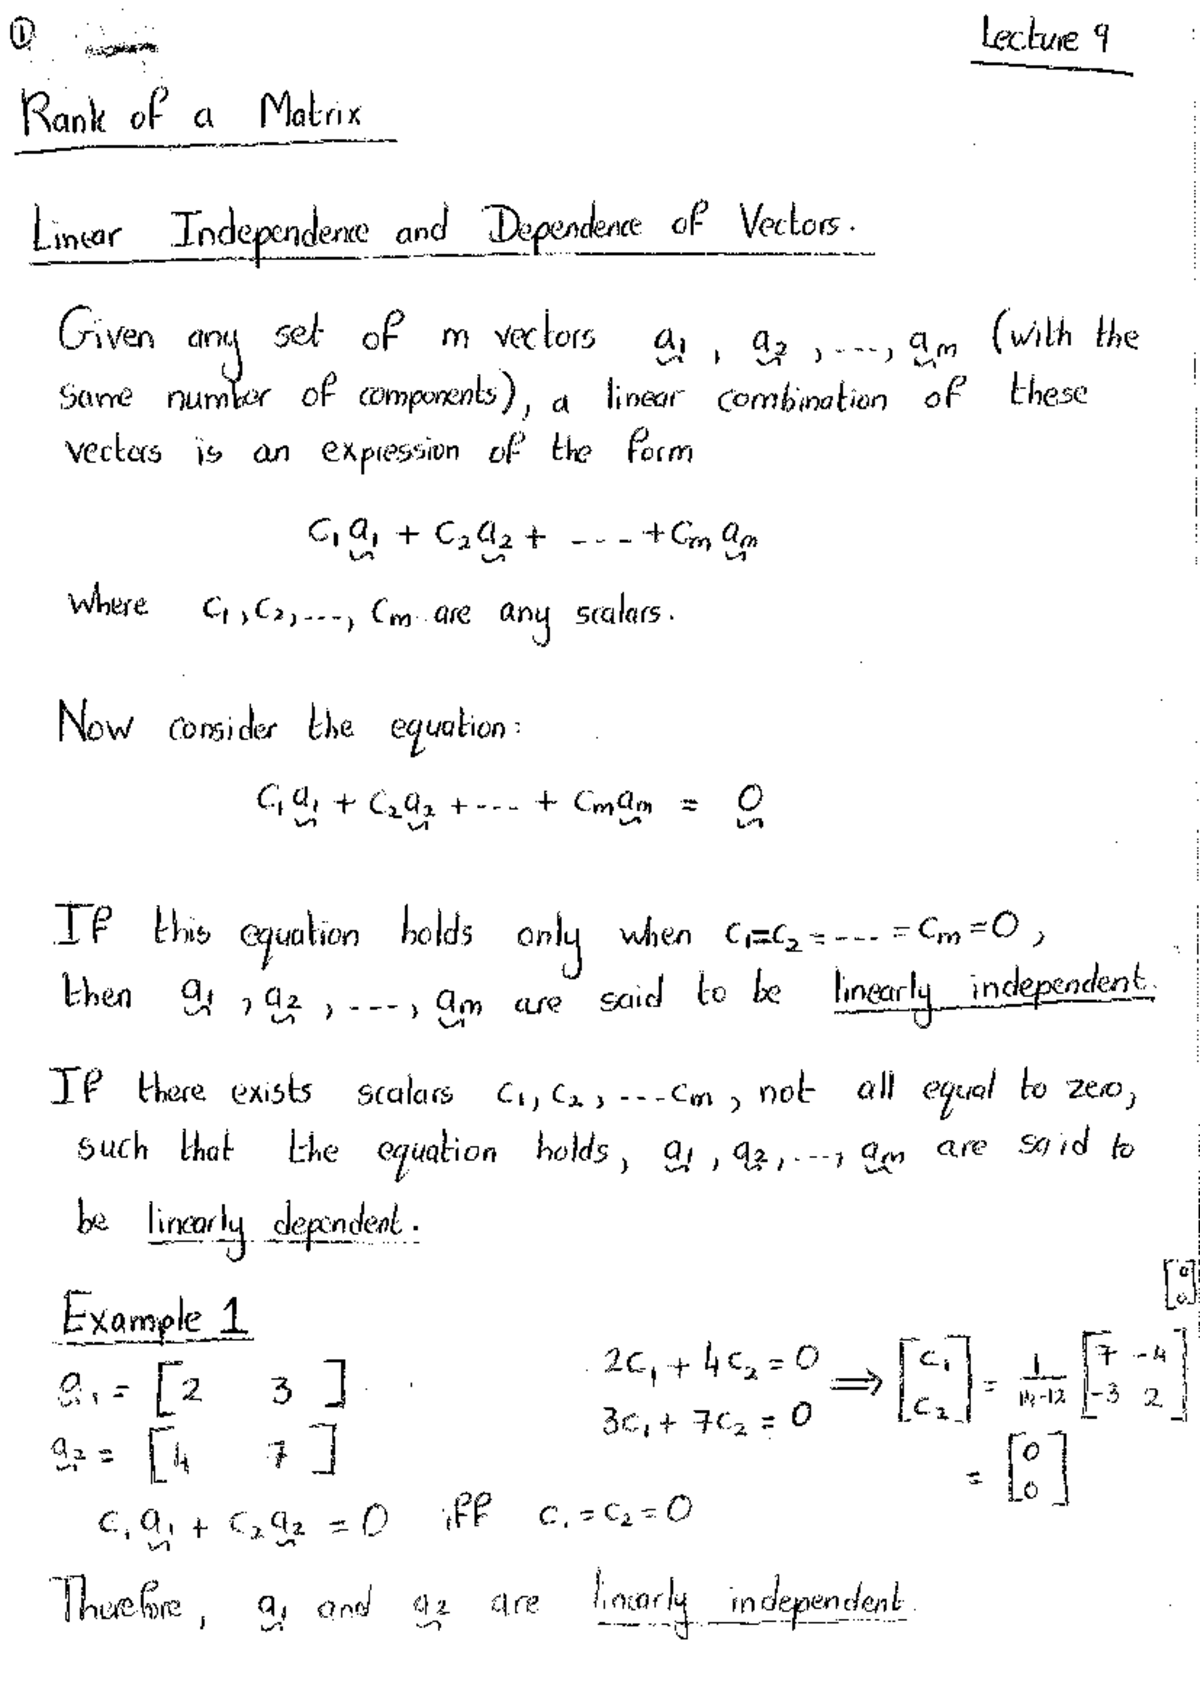 ① Lecture 9
Rank of a Matrix
Linear Independence and Dependence of Vectors.
Given any set of m vectors a₁, a₂, ..., aₘ (with the
same number of components), a linear combination of these
vectors is an expression of the form
c₁a₁ + c₂a₂ + ---- + cₘaₘ
where c₁, c₂, ..., cₘ are any scalars.
Now consider the equation:
c₁a₁ + c₂a₂ + ---- + cₘaₘ = 0
If this equation holds only when c₁=c₂=---=cₘ=0,
then a₁, a₂, ---, aₘ are said to be linearly independent.
If there exists scalars c₁, c₂, ---cₘ, not all equal to zero,
such that the equation holds, a₁, a₂, ..., aₘ are said to
be linearly dependent.
Example 1
a₁ = [2 3]
a₂ = [4 7]
2c₁ + 4c₂ = 0
3c₁ + 7c₂ = 0
⟹ [c₁ c₂] = 1/(14-12) [7 -4
-3 2] [0 0]
= [0 0]
c₁a₁ + c₂a₂ = 0 iff c₁ = c₂ = 0
Therefore, a₁ and a₂ are linearly independent.